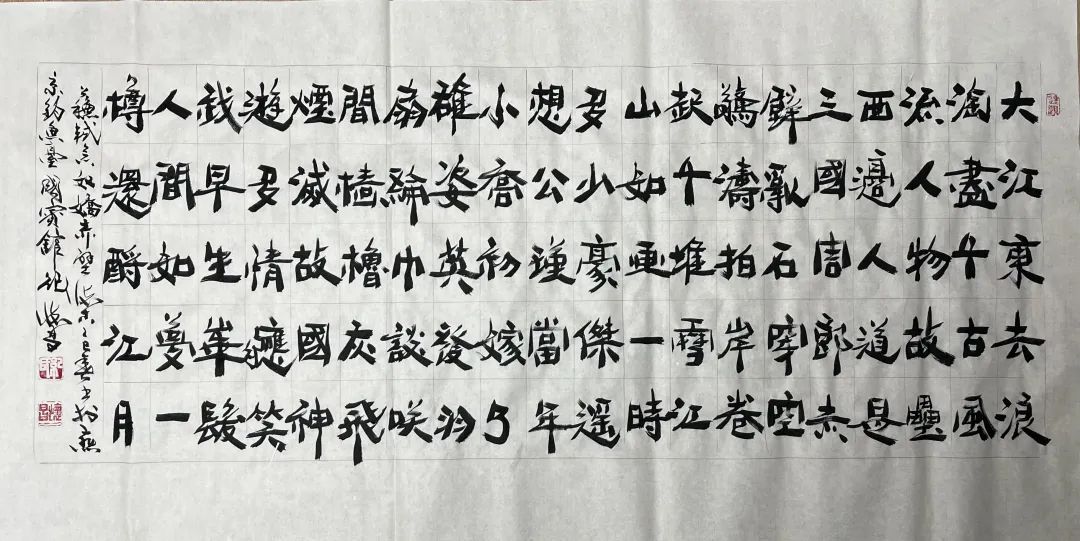 大江東去浪
淘盡千古風
流人物故壘
西邊人道是
三國周郎赤
壁亂石穿空
驚濤拍岸卷
起千堆雪江
山如画一時
多少豪傑遥
想公瑾當年
小喬初嫁了
雄姿英發羽
扇綸巾談咲
間檣櫓灰飛
煙滅故國神
遊多情應笑
我早生華髮
人間如夢一
樽還酹江月
蘇軾念奴嬌赤壁懷古乙巳春書於燕
京釣魚臺國賓館